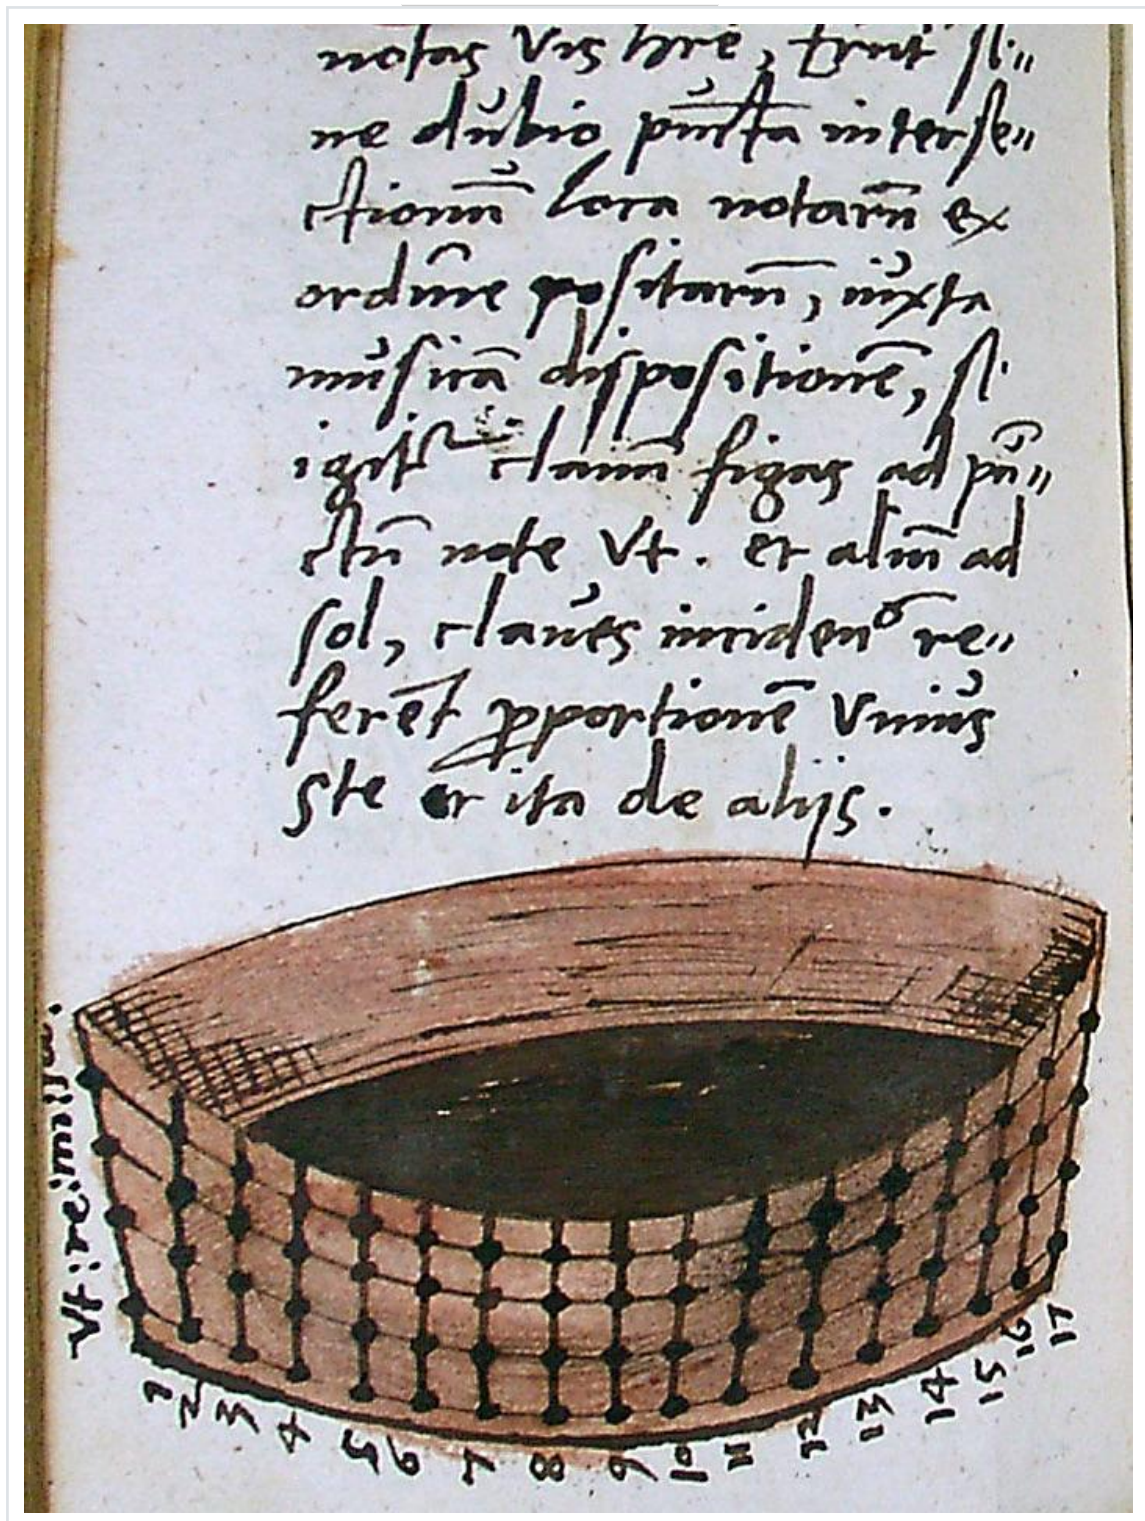 notas vis hr̄e, Erūt si〃
ne dubio pūcta interse〃
ctionū loca notarū ex
ordīne positarū, iuxta
musicā dispositionē, si
igit᷑ clauū figas ad pū〃
ctū note Vt . et aliū ad
sol, claues inciden
re〃
ferēt ꝓportionē vnius
et ita de alijs .
Vt : re : mi : fa :
1 2 3 4 5 6 7 8 9 10 11 12 13 14 15 16 17